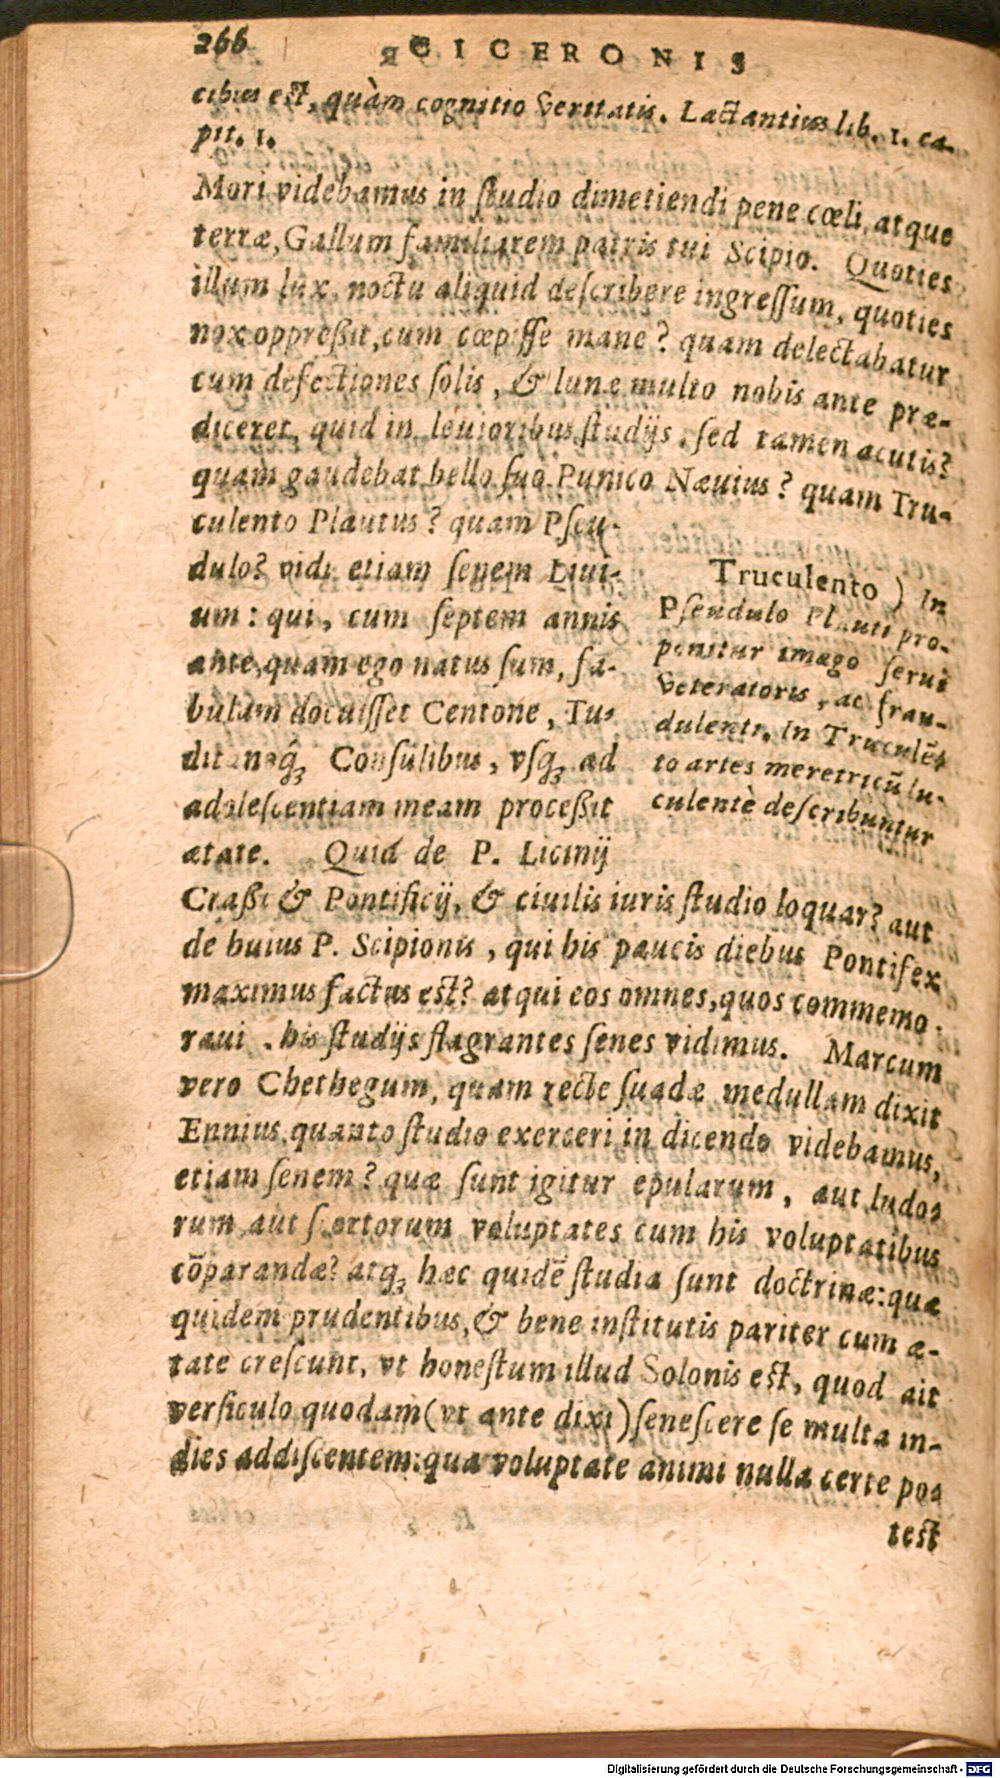 266 CICERONIS
cibus est, quàm cognitio veritatis. Lactantius lib. 1. ca-
pit. 1.
Mori videbamus in ſtudio dimetiendi pene cœli, atque
terræ, Gallum familiarem patris tui Scipio. Quoties
illum lux, noctu aliquid deſcribere ingreſſum, quoties
nox oppreßit, cum cœpiſſe mane? quam delectabatur
cum defectiones ſolis, & lunæ multo nobis ante præ-
diceret, quid in leuioribus ſtudijs, ſed tamen acutis?
quam gaudebat bello ſuo Punico Næuius? quam Tru-
culento Plautus? quam Pſeu-
dulo? vidi etiam ſenem Liui-
um: qui, cum ſeptem annis
ante, quam ego natus ſum, fa-
bulam docuiſſet Centone, Tu-
ditanoq́ꝫ Conſulibus, vſqꝫ ad
adoleſcentiam meam proceßit
ætate. Quid de P. Licinij
Truculento ) In
Pſeudulo Plauti pro-
ponitur imago ſerui
veteratoris, ac frau-
dulenti. In Truculēt
to artes meretricū lu-
culentè deſcribuntur
Craßi & Pontificij, & ciuilis iuris ſtudio loquar? aut
de huius P. Scipionis, qui his paucis diebus Pontifex
maximus factus est? atqui eos omnes, quos commemo-
raui, his ſtudijs flagrantes ſenes vidimus. Marcum
vero Chethegum, quam recte ſuadæ medullam dixit
Ennius, quanto ſtudio exerceri in dicendo videbamus,
etiam ſenem? quæ ſunt igitur epularum, aut ludo-
rum, aut ſcortorum voluptates cum his voluptatibus
cōparandæ? atqꝫ hæc quidē ſtudia ſunt doctrinæ: quæ
quidem prudentibus, & bene inſtitutis pariter cum æ-
tate creſcunt, vt honeſtum illud Solonis est, quod ait
verſiculo quodam (vt ante dixi) ſeneſcere ſe multa in-
dies addiſcentem: qua voluptate animi nulla certe po-
test
Digitalisierung gefördert durch die Deutsche Forschungsgemeinschaft - DFG